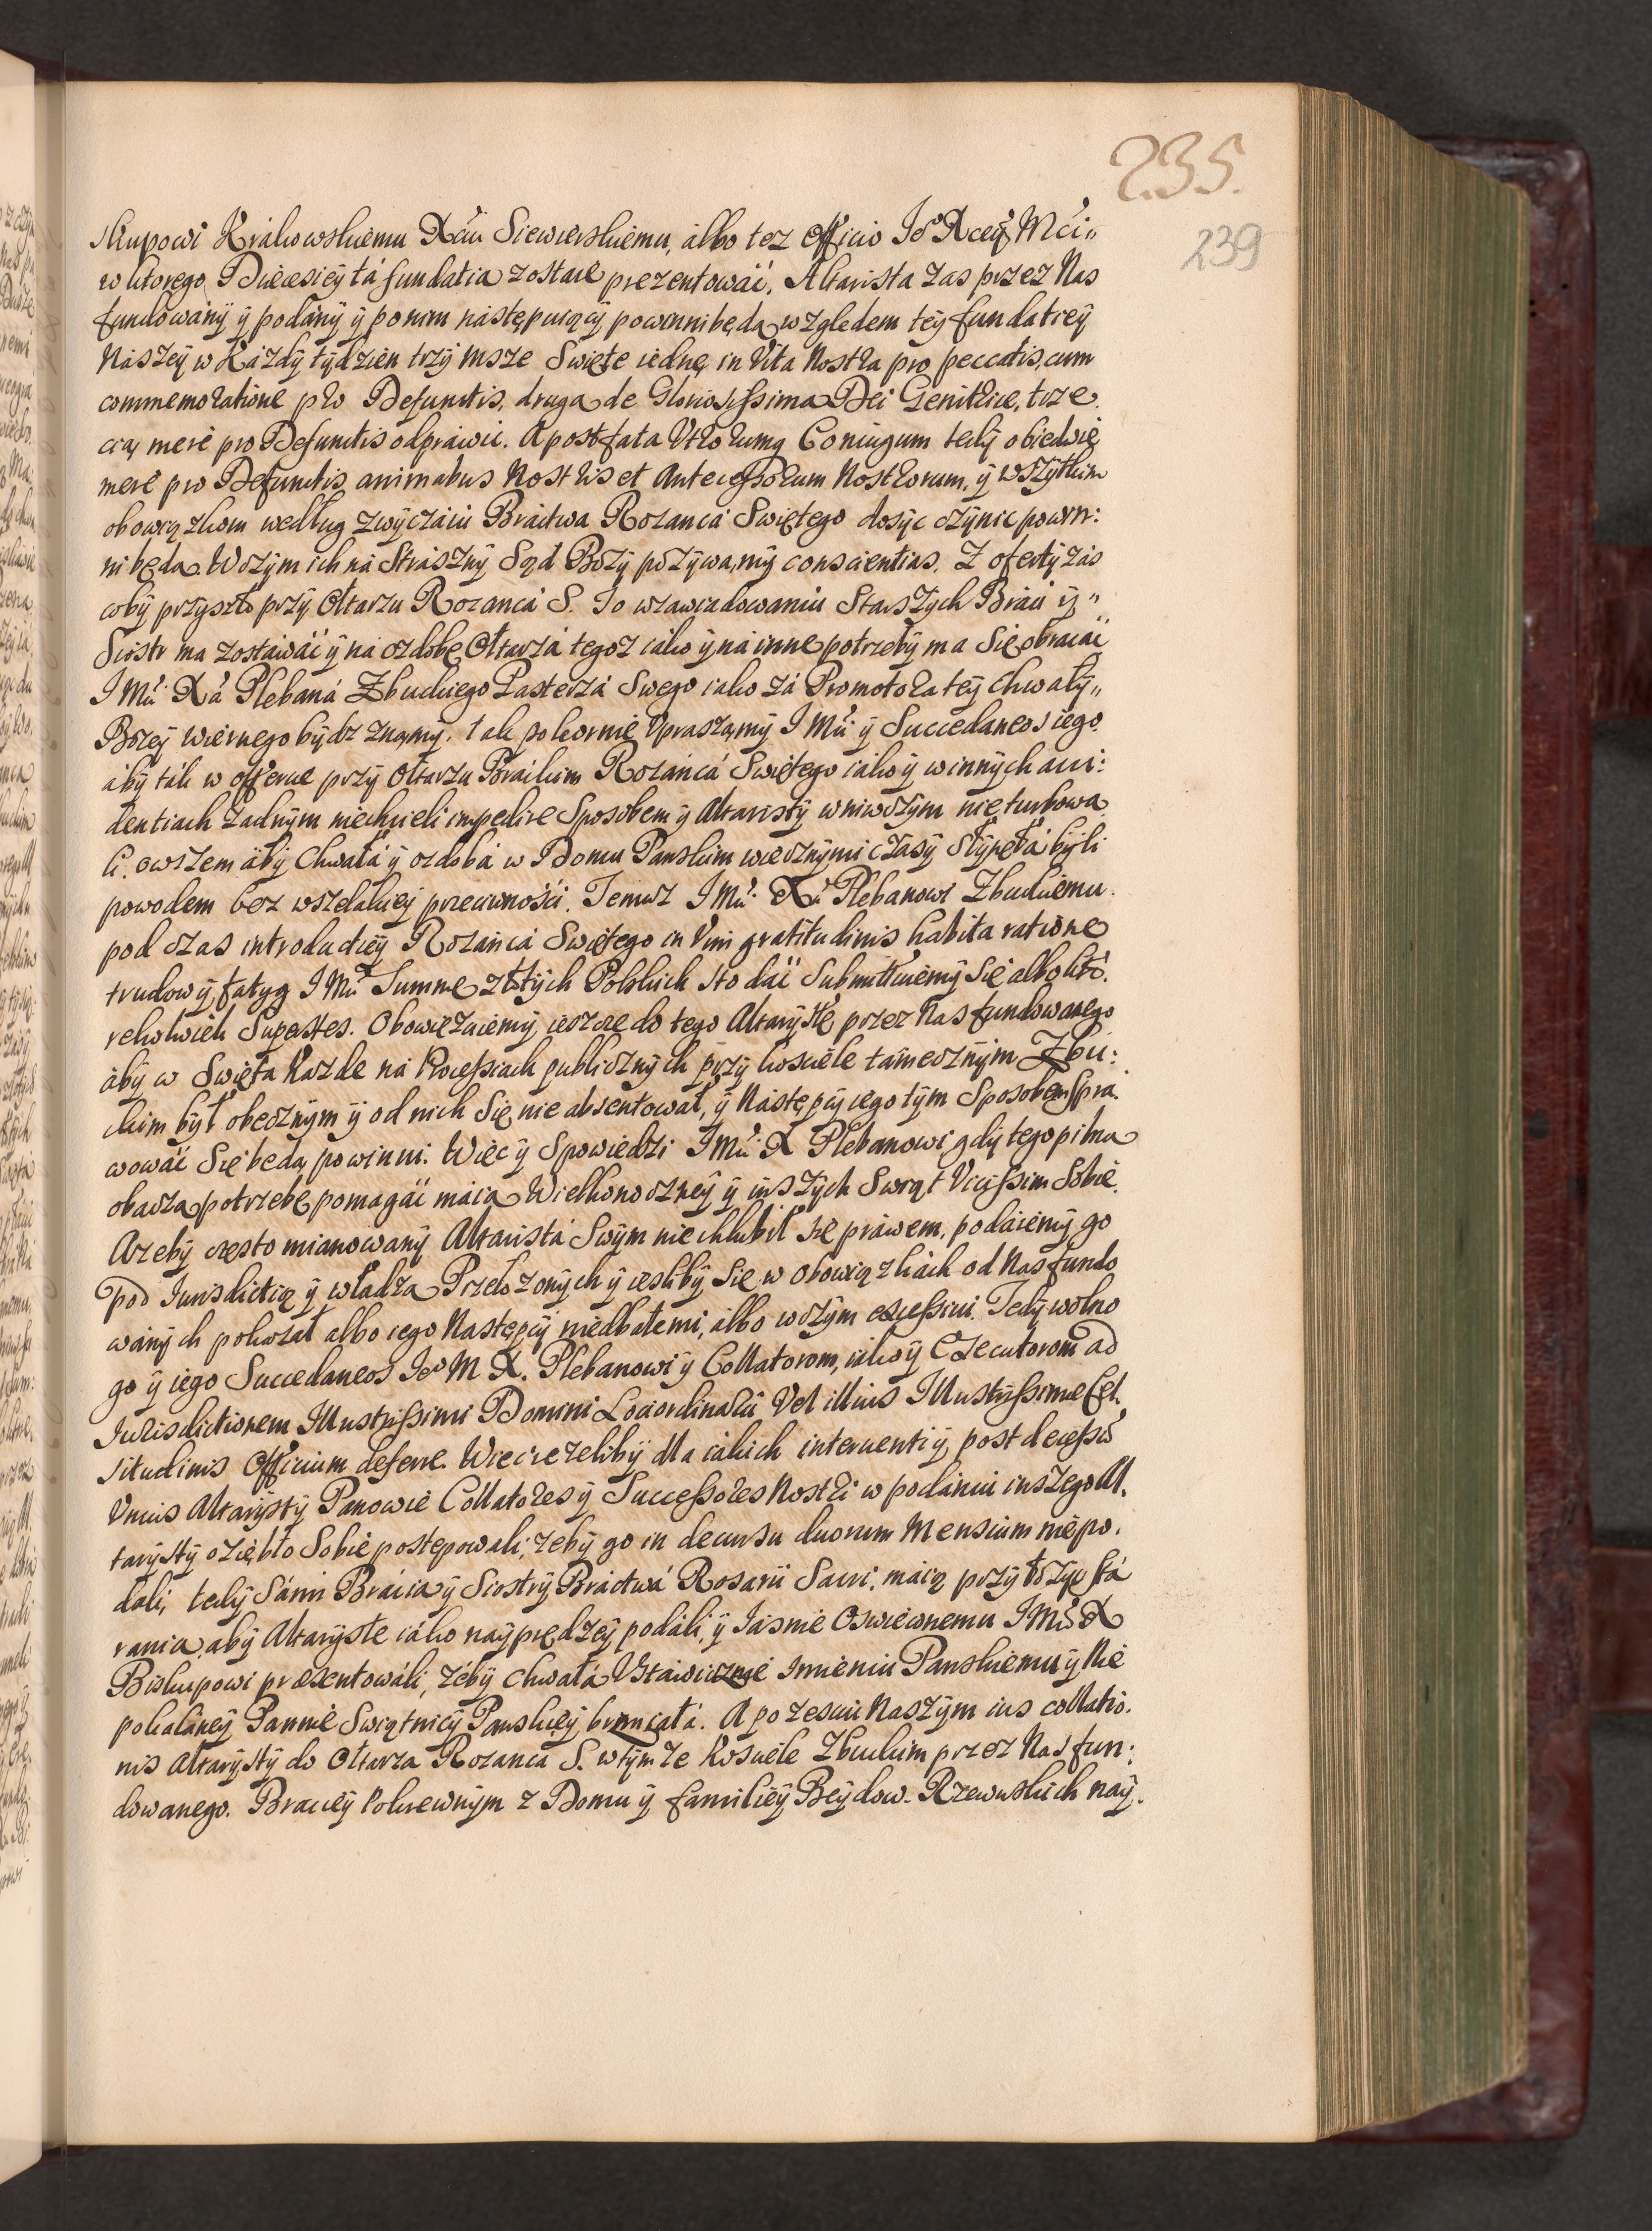 235.
239
skupowi Krakowskiemu Xciu Siewierskiemu, albo tez Officio Jeo Xcey Mci„
w ktorego Diæcesiey ta fundatia zostaie prezentowáć. Altarista zas przez Nas
fundowány ÿ podány ÿ po nim nástępuiącÿ powinni będą względem teÿ fundatieÿ
Naszeÿ w Káżdÿ tÿdzien trzÿ Msze Swięte iednę in Vita Nostra pro peccatis, cum
commemoratione pro Defunctis, drugą de Gloriosissima Dei Genitrice, trze„
cią mere pro Defunctis odpráwić. A post fata Utrorumq Coniugum tedÿ obiedwie
mere pro Defunctis animabus Nostris et Antecessorum Nostrorum, ÿ wszÿtkim
obowiązkom według zwÿczáiu Bráctwa Rozanca Swiętego dosÿc czÿnic powin:
ni będą. W czÿm ich ná Strasznÿ Sąd Bozÿ pozÿwamÿ conscientias. Z ofertÿ zás
cobÿ przÿszło przÿ Ołtarzu Rozancá S. To w zawiadowaniu Starszÿch Bráci ÿ„
Siostr ma zostáwáć ÿ ná ozdobę Ołtarzá tegoz iako ÿ ná inne potrzebÿ ma się obracáć
I Mci Xa Plebaná Zbuckiego Pasterzá Swego iako zá Promotora teÿ chwałÿ„
Bozeÿ wiernego bÿdz znamÿ, tak pokornie Upraszamÿ I Mci ÿ Succedaneos iego
ábÿ ták w offercie przÿ Ołtarzu Brackim Rozáncá Swiętego iako ÿ w innÿch acci:
dentiach zadnÿm niechcieli impedire Sposobem ÿ Altaristÿ w niwczÿm nie turbowa„
li. owszem ábÿ Chwałá ÿ ozdobá w Domu Panskim wiecznÿmi czásÿ słÿnęłá bÿli
powodem bez wszelakieÿ przeciwności. Temusz I Mci Xu Plebanowi Zbuckiemu.
pod czas introductieÿ Rozáncá Swiętego in Vim gratitudinis habita ratione
trudow ÿ fatÿg I Mci Summe złotÿch Polskich sto dáć Submittuiemÿ się albo któ„
rekolwiek Superstes. Obowięzuiemÿ ieszcze do tego Altarÿstę przez Nas fundowanego
ábÿ w Swięta Kazde ná Processiach publicznÿch przÿ kosciele támecznÿm Zbu:
ckim bÿł obecznÿm ÿ od nich się nie absentował, ÿ Następcÿ iego tÿm Sposobem spra„
wowáć się będą powinni. Więc ÿ Spowiedzi I Mci X Plebanowi gdÿ tego pilna
obaczą potrzebę pomagáć máią Wielkonoczneÿ ÿ inszÿch Swiąt Vicissim Sobie.
A zebÿ często mianowanÿ Altaristá Swÿm nie chlubił się práwem, podáiemÿ go
pod Iurisdictią ÿ władzą Przełozonÿch ÿ iesliby się w obowiązkách od Nas fundo„
wánÿch pokazał albo iego Następcÿ niedbałemi, álbo w czÿm excessivi. Tedÿ wolno
go ÿ iego Succedaneos Jeo M X. Plebanowi ÿ Collatorom, iako ÿ Executorom ad
Jurisdictionem Illustrissimi Domini Lociordinarii Vel illius Illustrissimæ Cel„
situdinis Officium deferre. Więc iezeliby dla iákich interventiÿ, post decessũ
Unius Altarÿstÿ Panowie Collatores ÿ Successores Nostri w podániu inszego Al„
tarÿstÿ oziębło Sobie postępowali, zebÿ go in decursu duorum Mensium nie po„
dali, tedÿ Sámi Brácia ÿ Siostrÿ Bráctwá Rosarii Sacri, máią przÿłozÿc stá„
rania, abÿ Altarÿste iáko naÿprędzeÿ podáli, ÿ Iásnie Oswieconemu I Mci X
Biskupowi præsentowáli, zébÿ chwałá Ustáwicznie Imieniu Panskiemu ÿ Nie
pokaláneÿ Pannie w Swiątnicÿ Panskieÿ brzmiałá. A po zesciu Naszÿm ius collatio„
nis Altarÿstÿ do Ołtarza Rozanca S. w tÿmze kosciele Zbuckim przez Nas fun:
dowanego. Bracieÿ Pokrewnÿm z Domu ÿ familieÿ Beÿdow. Rzewuskich naÿ„